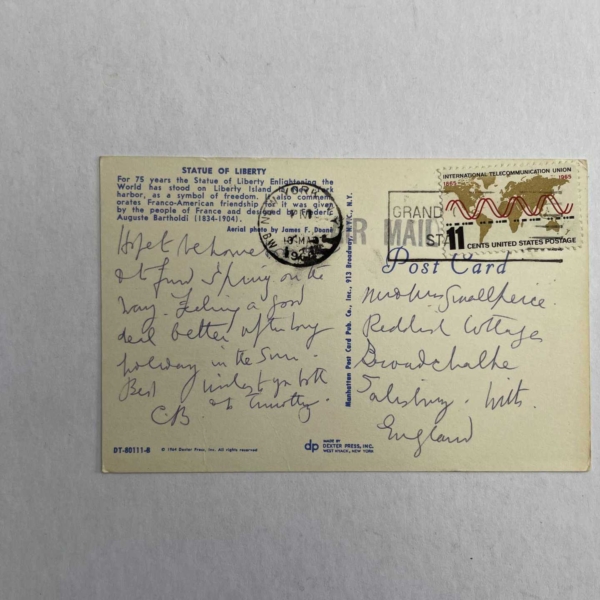 STATUE OF LIBERTY
For 75 years the Statue of Liberty Enlightening the
World has stood on Liberty Island in New York
harbor, as a symbol of freedom. It also commem-
orates Franco-American friendship for it was given
by the people of France and designed by Frederic
Auguste Bartholdi (1834-1904).
Aerial photo by James F. Doane
Hope to be home
Spring on the
way. Feeling a good
deal better after the long
holiday in the Sun.
Best wishes to you both
& Timothy.
CB
DT-80111-B
© 1964 Dexter Press, Inc. All rights reserved
Manhattan Post Card Pub. Co., Inc., 913 Broadway, N.Y.C., N.Y.
dp
MADE BY
DEXTER PRESS, INC.
WEST NYACK, NEW YORK
NEW YORK
MAIL
GRAND
STA
INTERNATIONAL TELECOMMUNICATION UNION
1865 1965
11 CENTS UNITED STATES POSTAGE
Post Card
Smallpeice
Reddish Cottages
Broadchalke
Salisbury. Wilts.
England